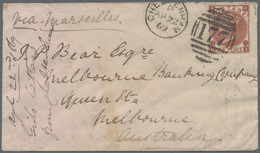 via Marseilles.
CHELTENHAM
P
AP 22
69
177
J. P. Bear Esqre
Melbourne Banking Company
Queen St.
Melbourne
Australia
April 22nd /69